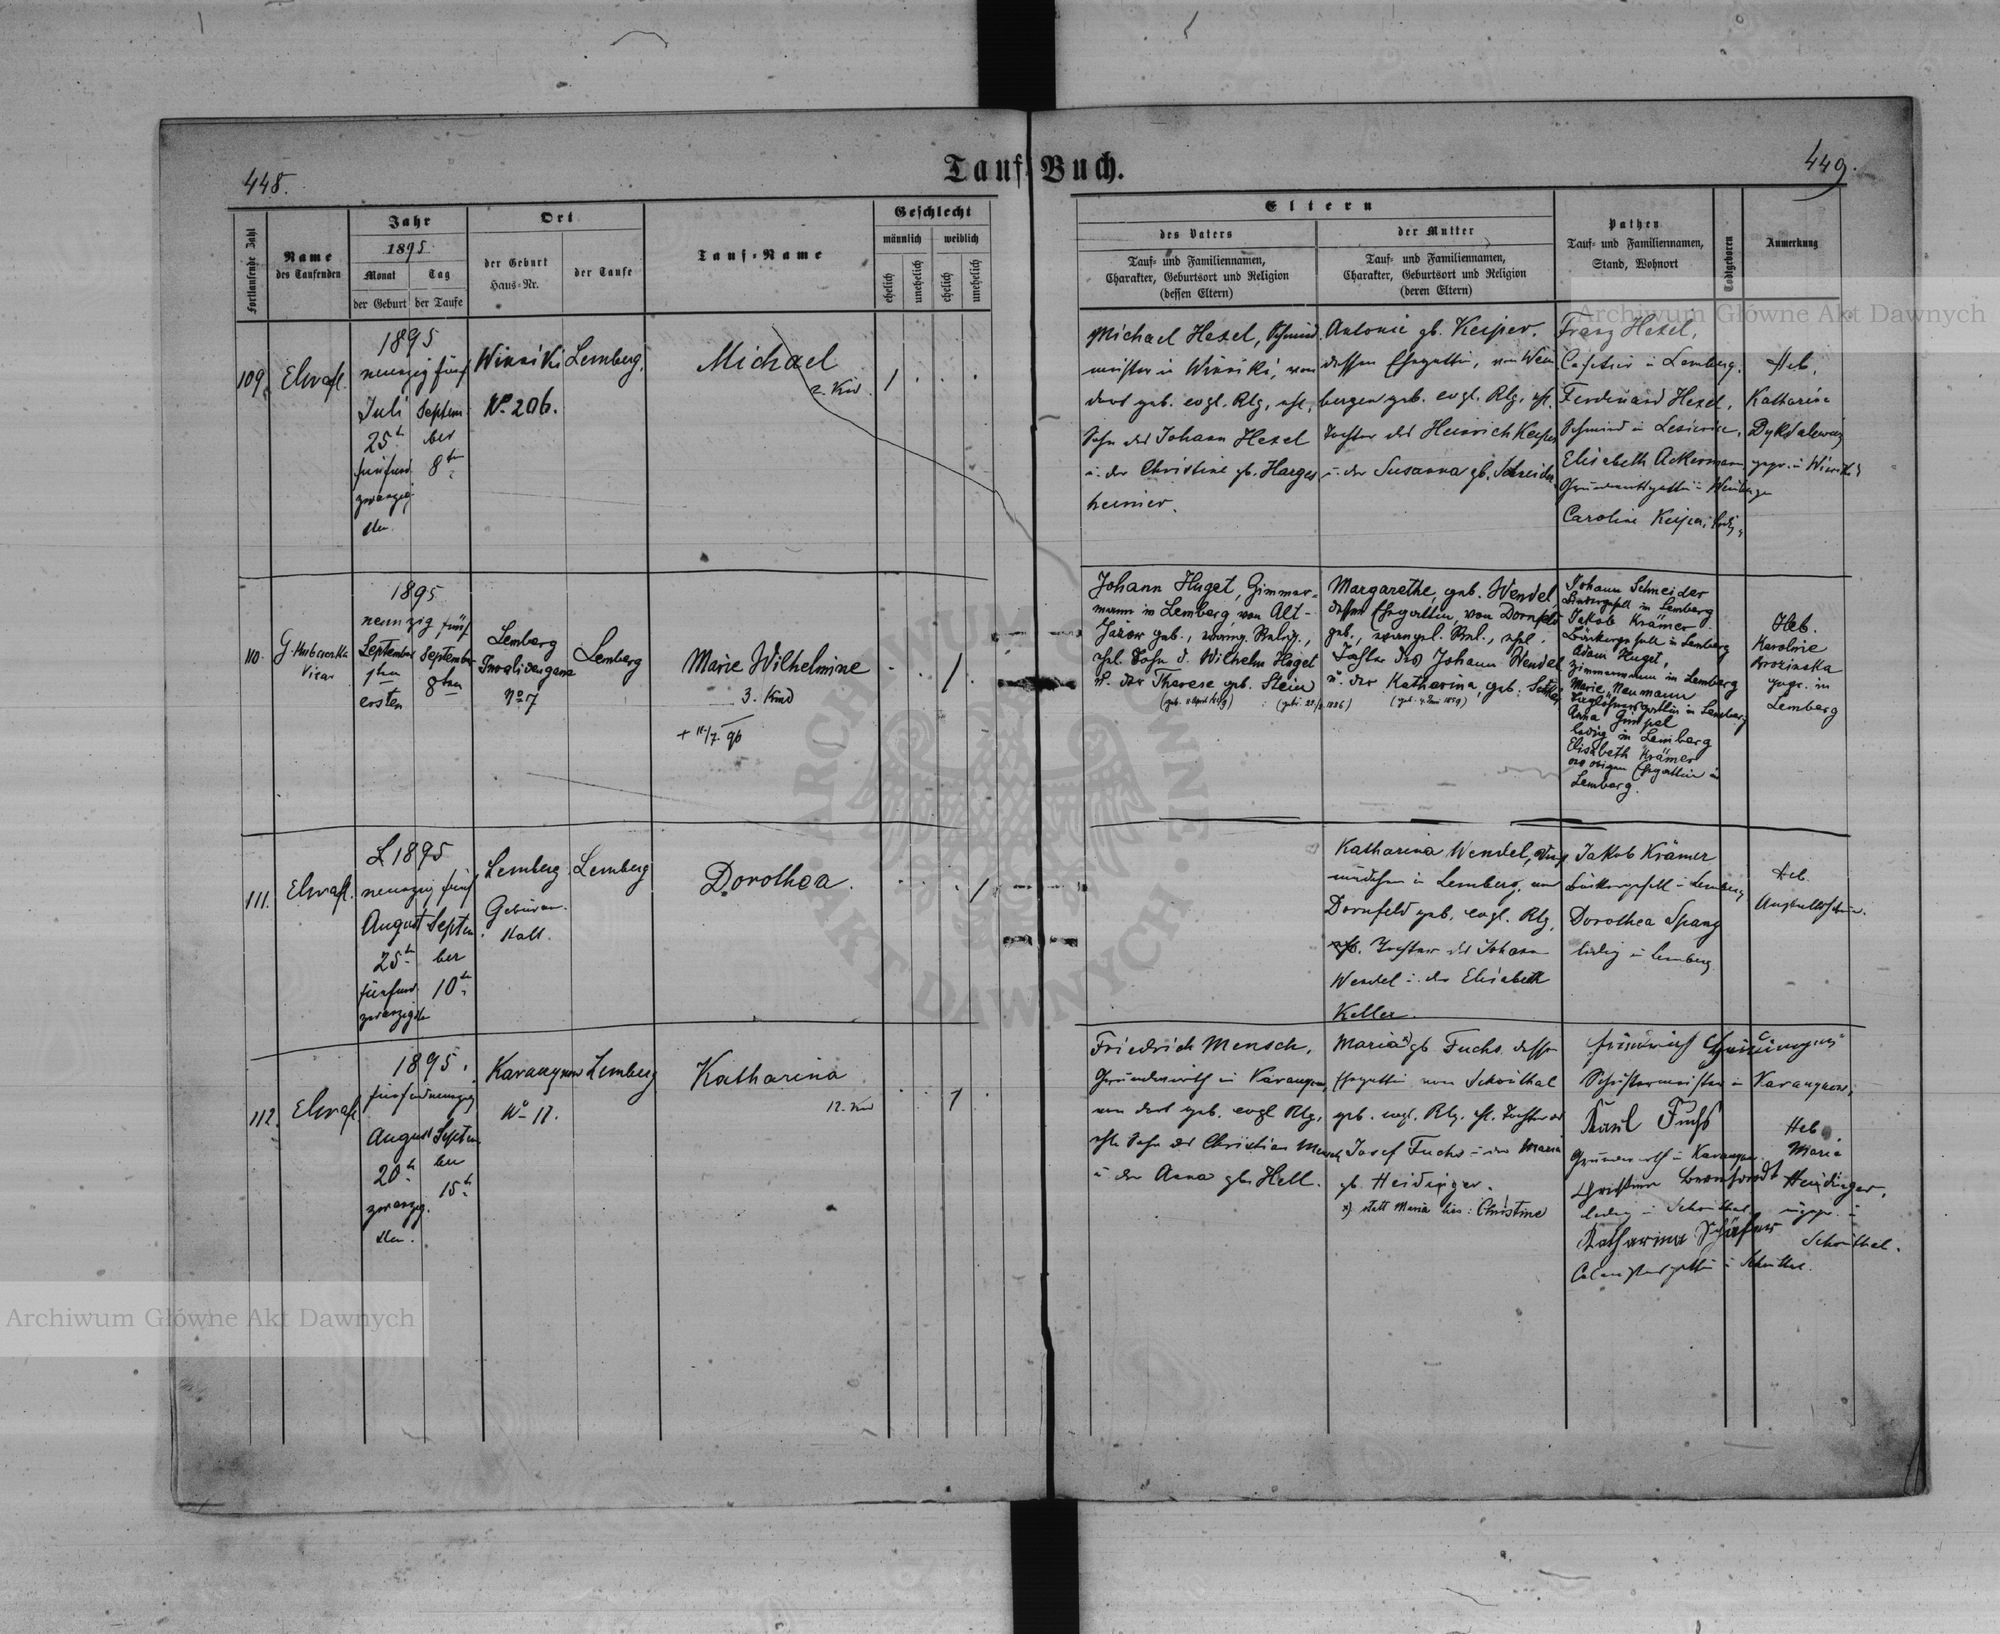 448.
Tauf-Buch.
449.
Fortlaufende Zahl
Name
des Taufenden
Jahr
1895
Monat
Tag
der Geburt
der Taufe
Ort
der Geburt
Haus-Nr.
der Taufe
Tauf-Name
Geschlecht
männlich
weiblich
ehelich
unehelich
ehelich
unehelich
Eltern
des Vaters
Tauf- und Familiennamen,
Charakter, Geburtsort und Religion
(dessen Eltern)
der Mutter
Tauf- und Familiennamen,
Charakter, Geburtsort und Religion
(deren Eltern)
Pathen
Tauf- und Familiennamen,
Stand, Wohnort
Todtgeboren
Anmerkung
109.
1895
neunzig fünf
Juli
25t
fünfund
zwanzig
sten
Septem
ber
8te
Winniki
No 206.
Lemberg.
Michael
2. Kind
1
Michael Hexel, Schmied
meister in Winniki, von
dort geb. evgl. Rlg. ehl.
Sohn des Johann Hexel
u. der Christine gb. Harges
heimer.
Antonie gb. Keiper.
dessen Ehegattin, von Wein
bergen geb. evgl. Rlg. ehl.
Tochter des Heinrich Keiper
u. der Susanna gb. Schneider
Franz Hexel,
Cafetier in Lemberg.
Ferdinand Hexel,
Schmied in
Elisabeth Ackermann
Caroline Keiper,
Heb.
Katharina
110.
Vicar
1895
neunzig fünf
September
1ten
ersten
September
8ten
Lemberg
Invalidengasse
No 17
Lemberg
Marie Wilhelmine
3. Kind
+ 11/7. 96
1
Johann Huget, Zimmer-
mann in Lemberg von Alt-
Jazow geb., evang. Relig.,
ehl. Sohn d. Wilhelm Huget
u. der Therese geb. Stein
Margarethe, geb. Wendel
dessen Ehegattin, von Dornfeld
geb., evangel. Rel., ehl.
Tochter des Johann Wendel
u. der Katharina, geb.
Johann Schneider
in Lemberg
Jakob Krämer
Bäckergesell in Lemberg
Adam Huget,
Zimmermann in Lemberg
Marie Naumann
in Lemberg
Anna Gimpel
ledig in Lemberg
Elisabeth Krämer
des obigen Ehegattin in
Lemberg.
Heb.
Karoline
Brozinska
gepr. in
Lemberg
111.
1895
neunzig fünf
August
25t
fünfund
zwanzigste
Septem
ber
10te
Lemberg
Gebäran-
stalt.
Lemberg
Dorothea.
1
Katharina Wendel,
in Lemberg, von
Dornfeld geb. evgl. Rlg.
ehl. Tochter des Johann
Wendel u. der Elisabeth
Keller.
Jakob Krämer
Bäckergesell in Lemberg
Dorothea Spang
ledig in Lemberg
Heb.
112.
1895.
fünfundneunzig
August
20t
zwanzig
sten.
Septem
ber
15t
No 17.
Lemberg
Katharina
12. Kind
1
Friedrich Mensch,
Grundwirth in
von dort geb. evgl Rlg.
ehl. Sohn des Christian Mensch
u. der Anna gb. Hell.
Maria x) gb. Fuchs dessen
Ehegattin von Schönthal
geb. evgl. Rlg. ehl. Tochter des
Josef Fuchs u. der Maria
gb. Heidinger.
x) statt Maria lies: Christine
Schustermeister in
Karl Fuchs
Grundwirth in
ledig in Schönthal
Katharina Schäfer
in Schönthal.
Heb.
Maria
Heidinger,
Schönthal.
Archiwum Główne Akt Dawnych
Archiwum Główne Akt Dawnych
ARCHIWUM GŁÓWNE
AKT DAWNYCH